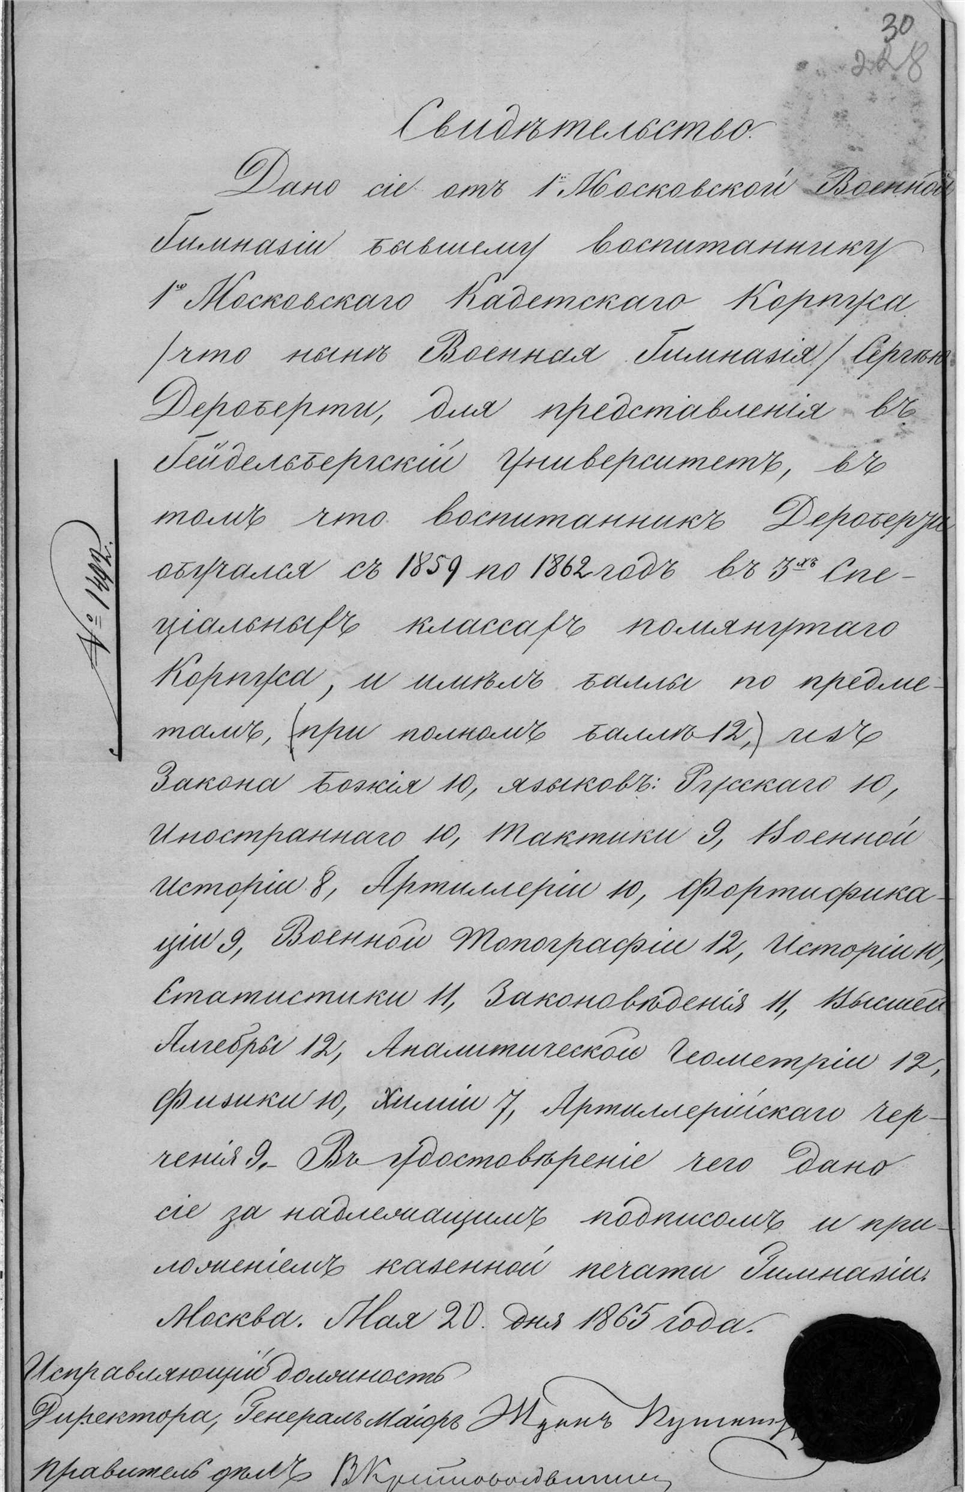 30
228
Свидѣтельство.
Дано сіе отъ 1й Московской Военной
Гимназіи бывшему воспитаннику
1го Московскаго Кадетскаго Корпуса
/что нынѣ Военная Гимназія/ Сергѣю
Дероберти, для представленія въ
Гейдельбергскій Университетъ, въ
томъ что воспитанникъ Дероберти
обучался съ 1859 по 1862 годъ въ 3хъ Спе-
ціальныхъ классахъ помянутаго
Корпуса, и имѣлъ баллы по предме-
тамъ, (при полномъ баллѣ 12,) изъ
Закона Божія 10, языковъ: Русскаго 10,
Иностраннаго 10, Тактики 9, Военной
Исторіи 8, Артиллеріи 10, Фортифика-
ціи 9, Военной Топографіи 12, Исторіи 10,
Статистики 11, Законовѣденія 11, Высшей
Алгебры 12, Аналитической Геометріи 12,
Физики 10, Химіи 7, Артиллерійскаго Чер-
ченія 9.- Въ удостовѣреніе чего дано
сіе за надлежащимъ подписомъ и при-
ложеніемъ казенной печати Гимназіи.
Москва. Мая 20 дня 1865 года.
Исправляющій должность
Директора, Генералъ Маіоръ
Правитель дѣлъ
№ 1492.